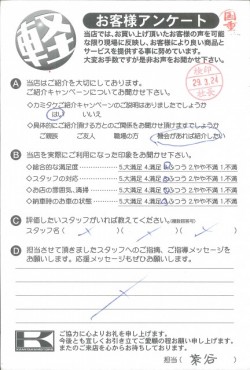 軽
お客様アンケート
当店では、お買い上げ頂いたお客様の声を可能
な限り現場に反映し、お客様により良い商品と
サービスを提供する事に努めています。
大変お手数ですが是非お声をお聞かせ下さい。
29.3.24
A 当店はご紹介を大切にしております。
ご紹介キャンペーンについてお聞かせ下さい。
◇カミタケご紹介キャンペーンのご説明はありましたでしょうか
はい いいえ
◇具体的にご紹介頂ける方とのご関係をお聞かせ頂けますでしょうか
ご親族 ご友人 職場の方 機会があれば紹介したい
B 当店を実際にご利用になられた印象をお聞かせ下さい。
◇総合的な満足度 5.大満足 4.満足 3.ふつう 2.やや不満 1.不満
◇スタッフの対応 5.大満足 4.満足 3.ふつう 2.やや不満 1.不満
◇お店の雰囲気、清掃 5.大満足 4.満足 3.ふつう 2.やや不満 1.不満
◇納車時のお車の状態 5.大満足 4.満足 3.ふつう 2.やや不満 1.不満
C 評価したいスタッフがいれば教えてください。(複数回答可)
スタッフ名( )( )
D 担当させて頂きましたスタッフへのご指摘、ご指導メッセージを
お願いします。応援メッセージもぜひお願いします。
K
ご協力に心よりお礼を申し上げます。
今後とも宜しくお引き立てご愛顧の程お願い申し上げます。
またのご来店を心からお待ちしております。
担当( )